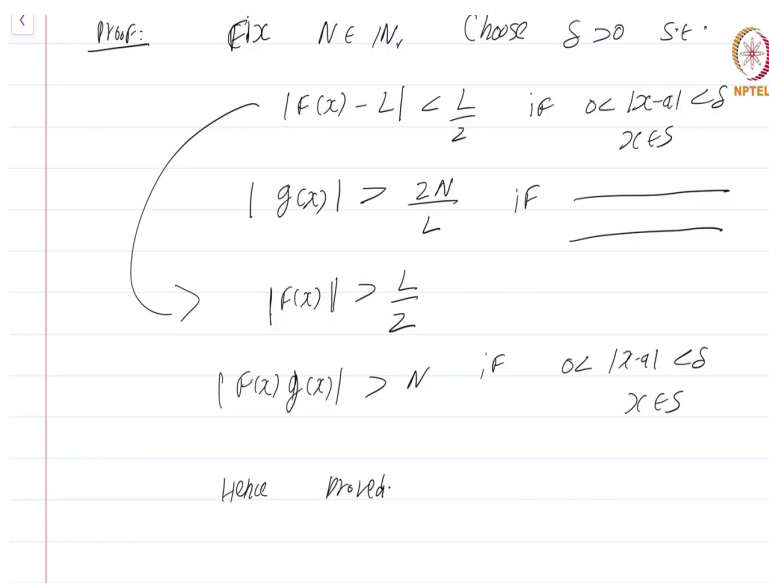 Proof: Fix N ∈ ℕ, Choose δ > 0 s.t.
NPTEL
|F(x) - L| < L/2 if 0 < |x-a| < δ
x ∈ S
|g(x)| > 2N/L if
|F(x)| > L/2
|F(x) g(x)| > N if 0 < |x-a| < δ
x ∈ S
Hence Proved.